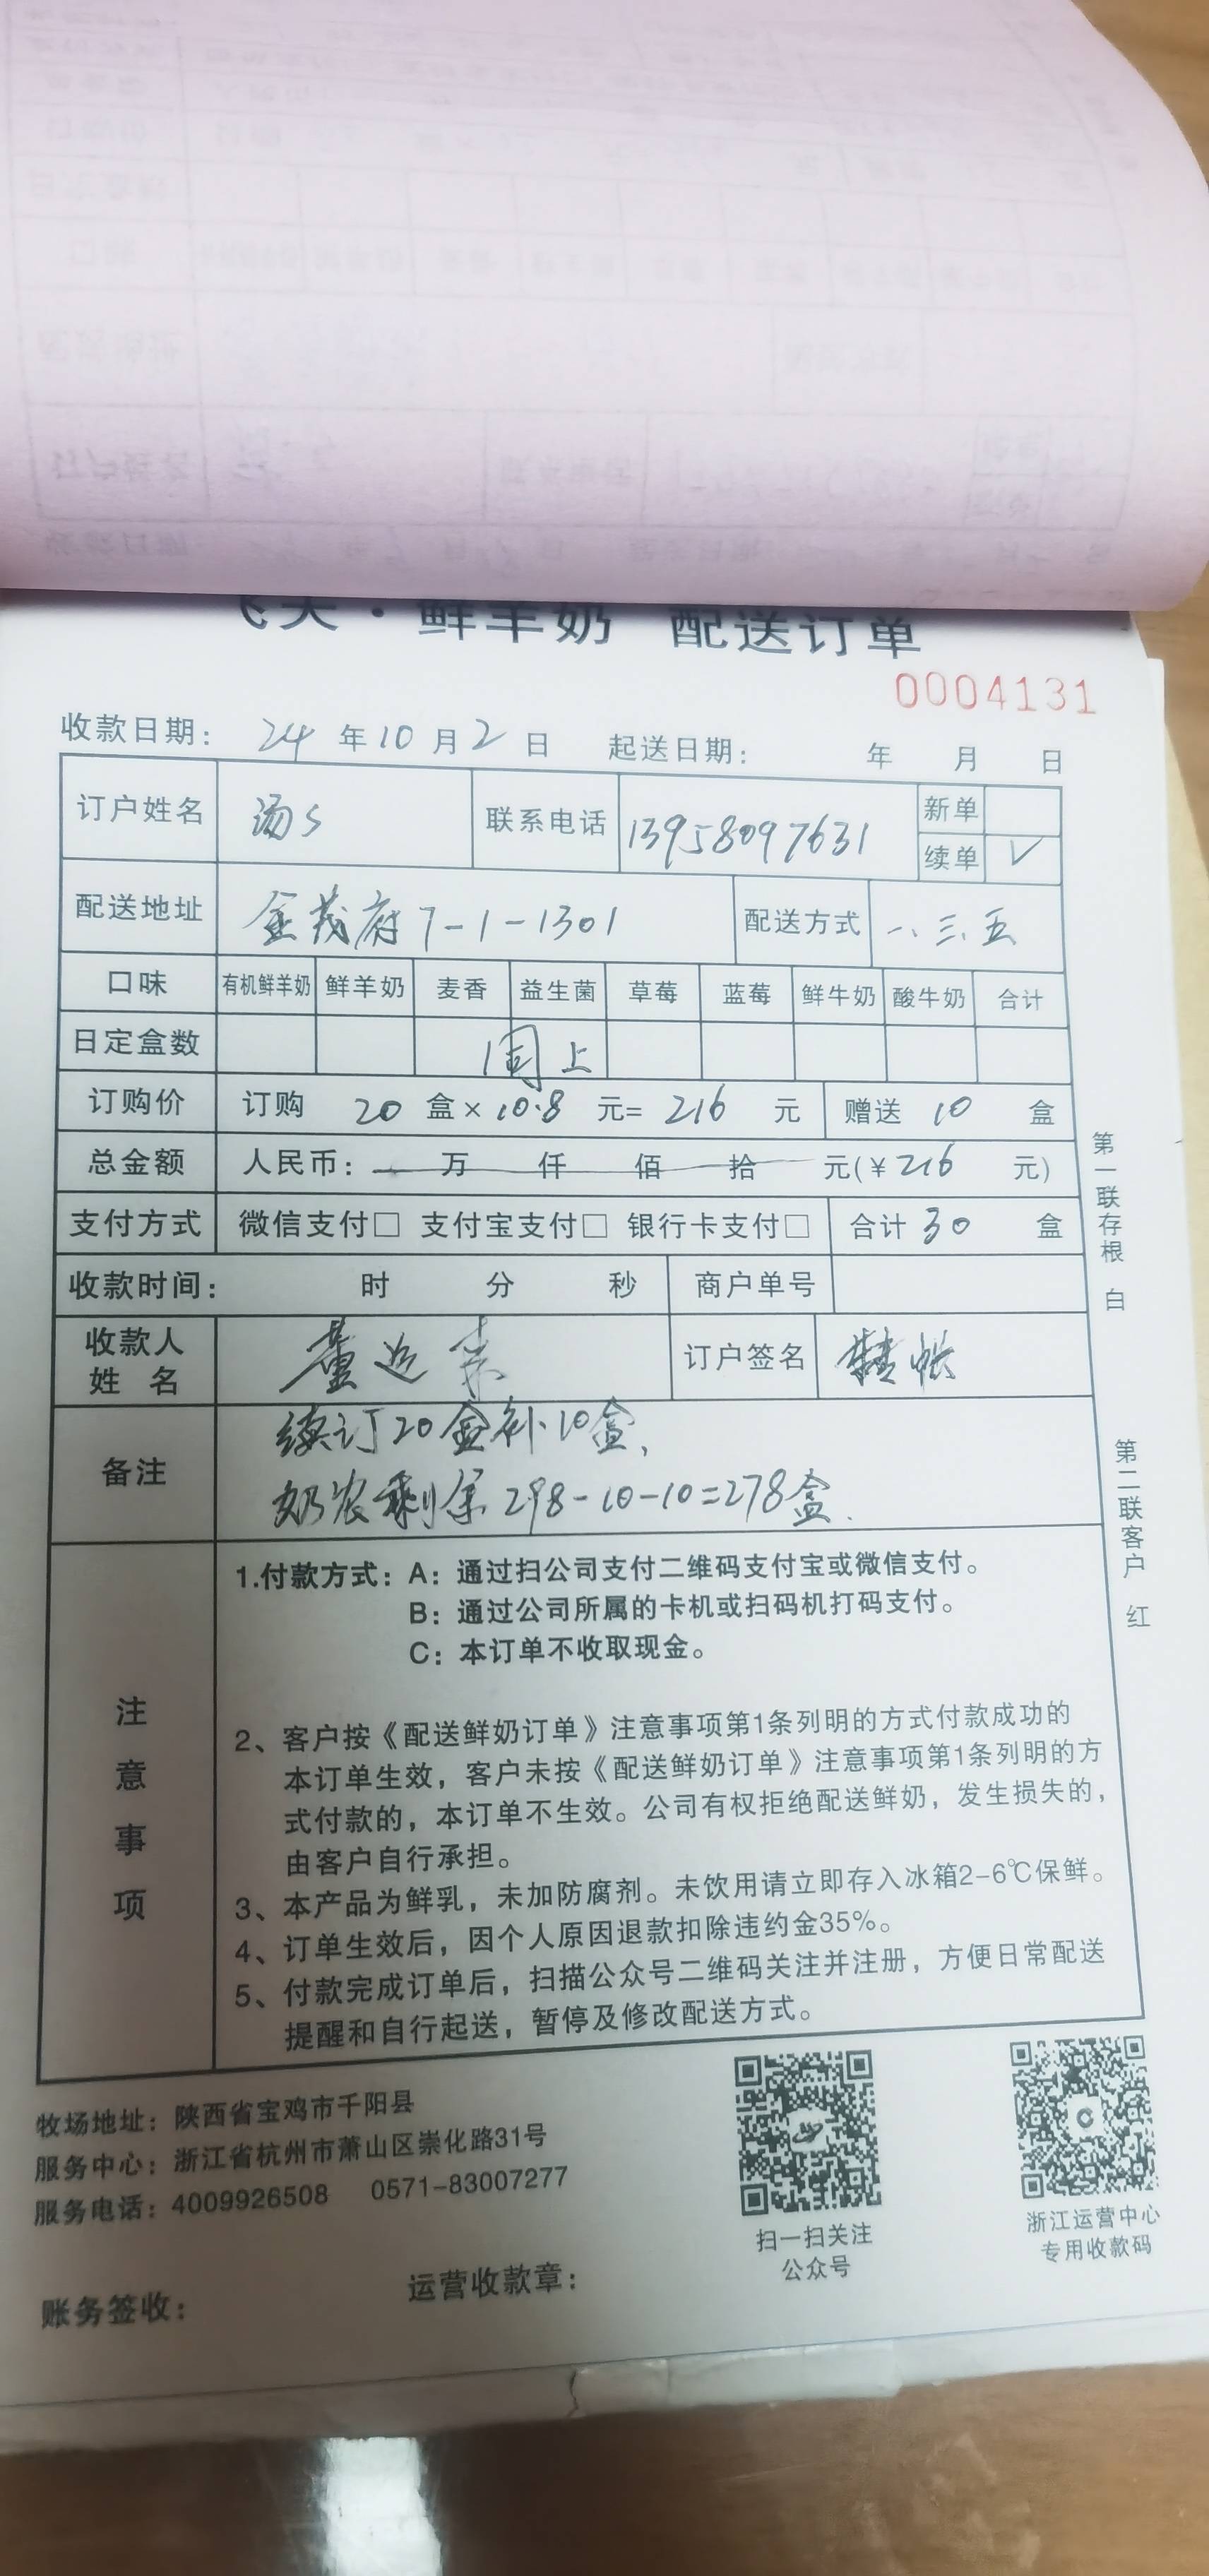 飞天·鲜羊奶 配送订单
0004131
收款日期： 24 年 10 月 2 日 起送日期： 年 月 日
订户姓名 汤S 联系电话 13958097631 新单
续单 ✓
配送地址 金茂府7-1-1301 配送方式 一、三、五
口味 有机鲜羊奶 鲜羊奶 麦香 益生菌 草莓 蓝莓 鲜牛奶 酸牛奶 合计
日定盒数 同上
订购价 订购 20 盒× 10.8 元= 216 元 赠送 10 盒
总金额 人民币： 万 仟 佰 拾 元(¥216 元)
支付方式 微信支付□ 支付宝支付□ 银行卡支付□ 合计 30 盒
收款时间： 时 分 秒 商户单号
收款人
姓 名 董 订户签名 转帐
备注 续订20盒补10盒、
奶农剩余298-10-10=278盒.
注意事项
1.付款方式：A：通过扫公司支付二维码支付宝或微信支付。
B：通过公司所属的卡机或扫码机打码支付。
C：本订单不收取现金。
2、客户按《配送鲜奶订单》注意事项第1条列明的方式付款成功的
本订单生效，客户未按《配送鲜奶订单》注意事项第1条列明的方
式付款的，本订单不生效。公司有权拒绝配送鲜奶，发生损失的，
由客户自行承担。
3、本产品为鲜乳，未加防腐剂。未饮用请立即存入冰箱2-6℃保鲜。
4、订单生效后，因个人原因退款扣除违约金35%。
5、付款完成订单后，扫描公众号二维码关注并注册，方便日常配送
提醒和自行起送，暂停及修改配送方式。
第一联存根 白
第二联客户 红
牧场地址：陕西省宝鸡市千阳县
服务中心：浙江省杭州市萧山区崇化路31号
服务电话：4009926508 0571-83007277
扫一扫关注
公众号
浙江运营中心
专用收款码
账务签收： 运营收款章：